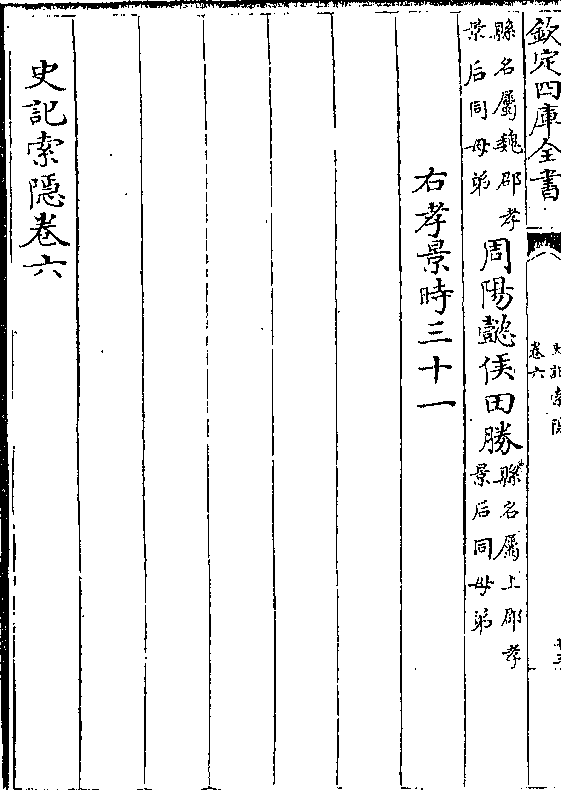 欽定四庫全書
史記索隱
卷六
縣名屬魏郡孝
景后同母弟
周陽懿侯田勝
縣名屬上郡孝
景后同母弟
右孝景時三十一
史記索隱卷六